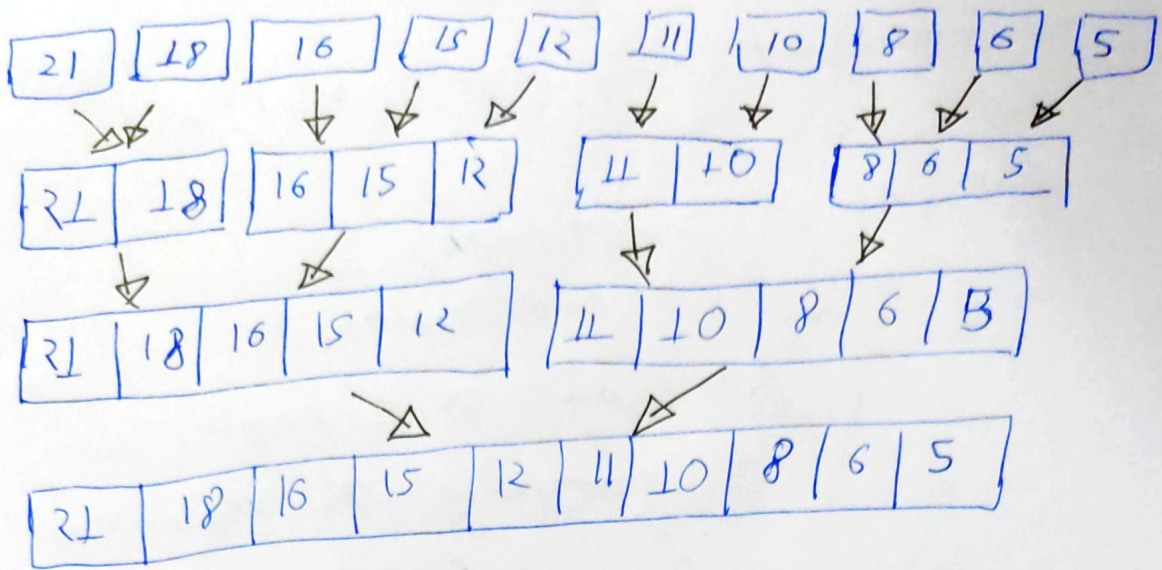 21 18 16 15 12 11 10 8 6 5
21 18 16 15 12 11 10 8 6 5
21 18 16 15 12 11 10 8 6 5
21 18 16 15 12 11 10 8 6 5